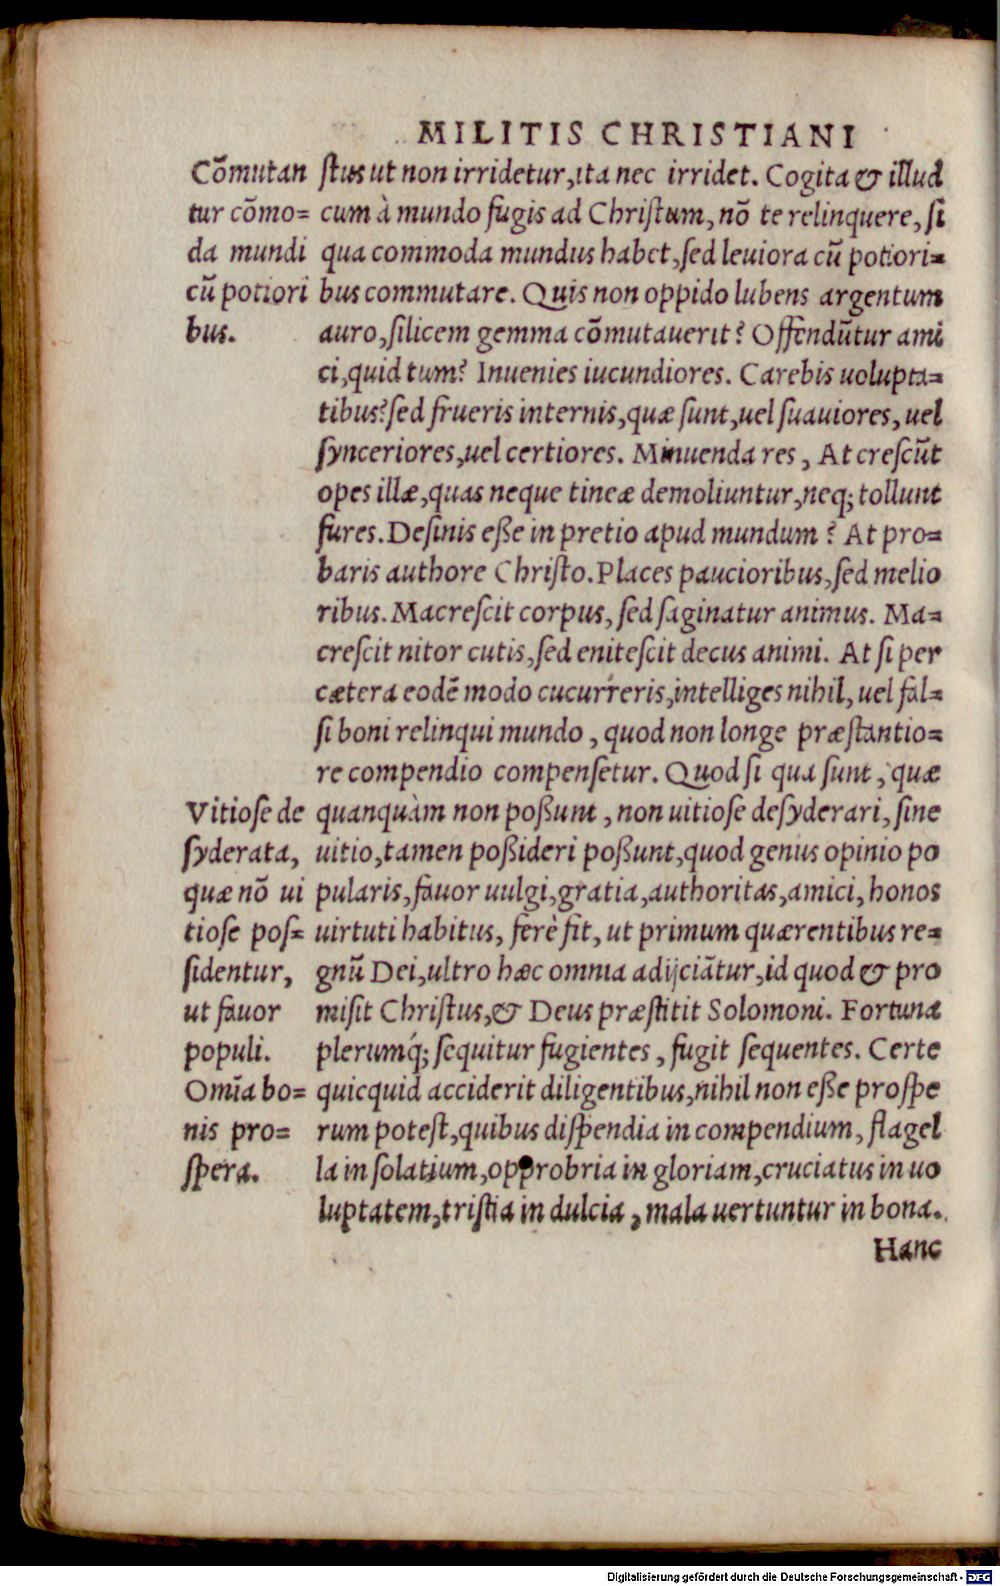 MILITIS CHRISTIANI
Cõmutan
tur cõmo=
da mundi
cũ potiori
bus.
stus ut non irridetur, ita nec irridet. Cogita & illud
cum à mundo fugis ad Christum, nõ te relinquere, si
qua commoda mundus habet, sed leuiora cũ potiori=
bus commutare. Quis non oppido lubens argentum
auro, silicem gemma cõmutauerit? Offendũtur ami
ci, quid tum? Inuenies iucundiores. Carebis uolupta=
tibus? sed frueris internis, quæ sunt, uel suauiores, uel
synceriores, uel certiores. Minuenda res, At crescũt
opes illæ, quas neque tineæ demoliuntur, neq; tollunt
fures. Desinis eße in pretio apud mundum? At pro=
baris authore Christo. Places paucioribus, sed melio
ribus. Macrescit corpus, sed saginatur animus. Ma=
crescit nitor cutis, sed enitescit decus animi. At si per
cætera eodẽ modo cucurreris, intelliges nihil, uel fal=
si boni relinqui mundo, quod non longe præstantio=
re compendio compensetur. Quod si qua sunt, quæ
quanquàm non poßunt, non uitiose desyderari, sine
uitio, tamen poßideri poßunt, quod genus opinio po
pularis, fauor uulgi, gratia, authoritas, amici, honos
uirtuti habitus, ferè fit, ut primum quærentibus re=
gnũ Dei, ultro hæc omnia adijciãtur, id quod & pro
misit Christus, & Deus præstitit Solomoni. Fortuna
plerumq́; sequitur fugientes, fugit sequentes. Certe
quicquid acciderit diligentibus, nihil non eße prospe
rum potest, quibus dispendia in compendium, flagel
la in solatium, opprobria in gloriam, cruciatus in uo
luptatem, tristia in dulcia, mala uertuntur in bona.
Vitiose de
syderata,
quæ nõ ui
tiose pos=
sidentur,
ut fauor
populi.
Omĩa bo=
nis pro=
spera.
Hanc
Digitalisierung gefördert durch die Deutsche Forschungsgemeinschaft - DFG